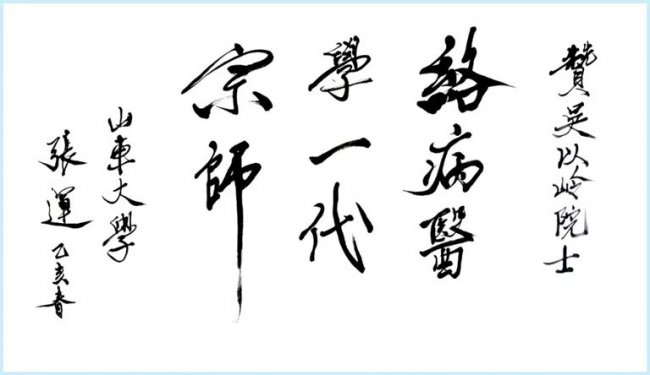 贊吳以岭院士
絡病醫
學一代
宗師
山東大學
張運 乙亥春